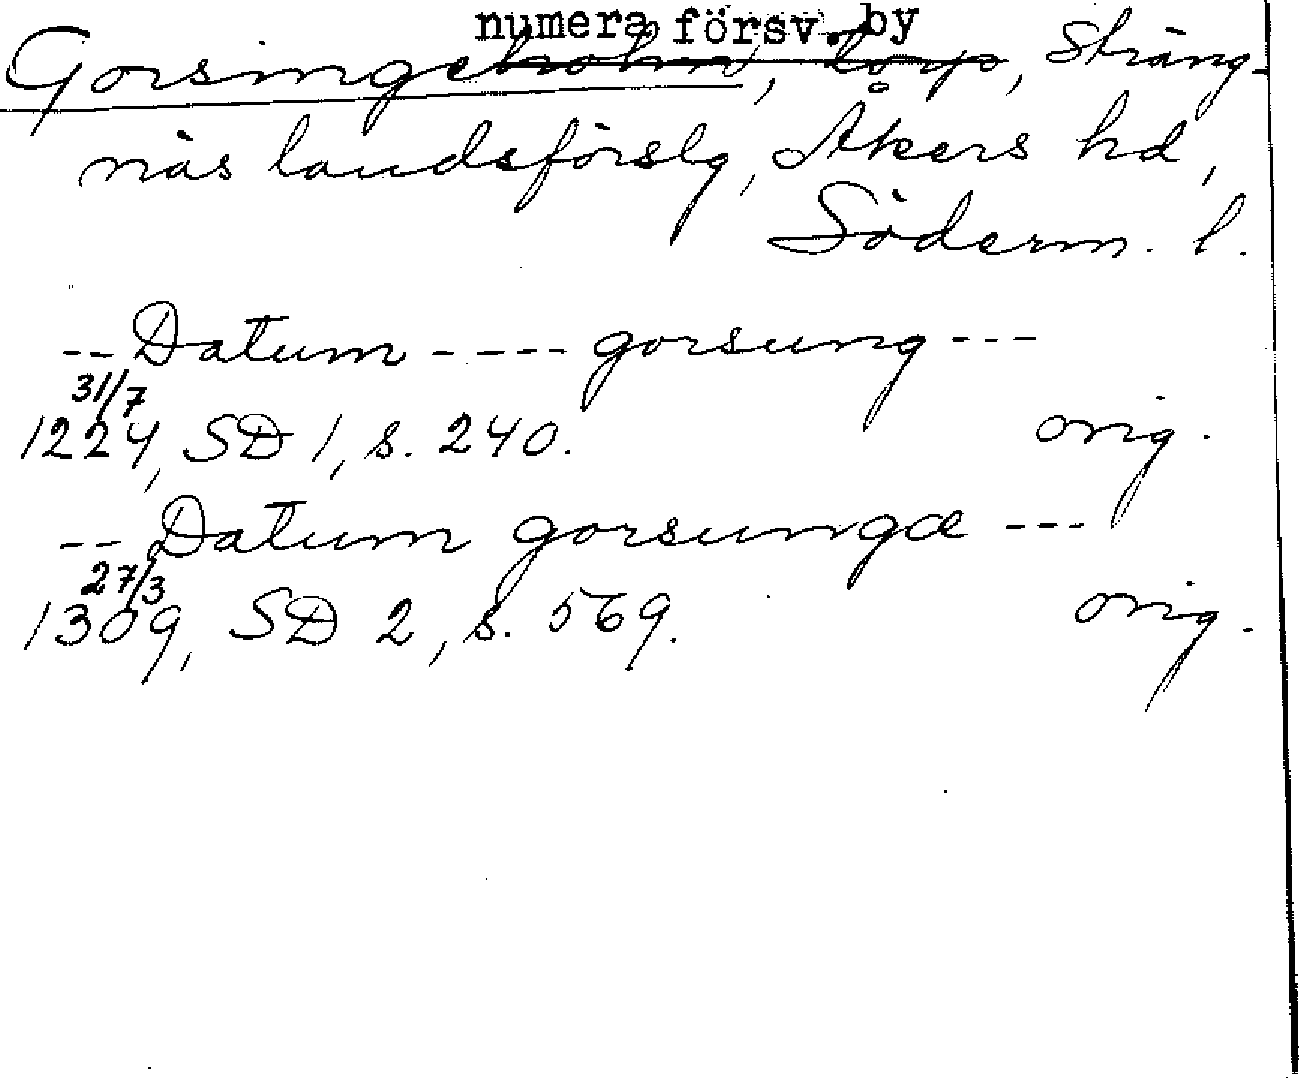 numera försv. by
Gorsingeholm, torp, Sträng-
näs landsförslg, Åkers hd,
Söderm. l.
-- Datum ---- gorsung ---
31/7
1224, SD 1, s. 240. orig.
-- Datum gorsungæ ---
27/3
1309, SD 2, s. 569. orig.